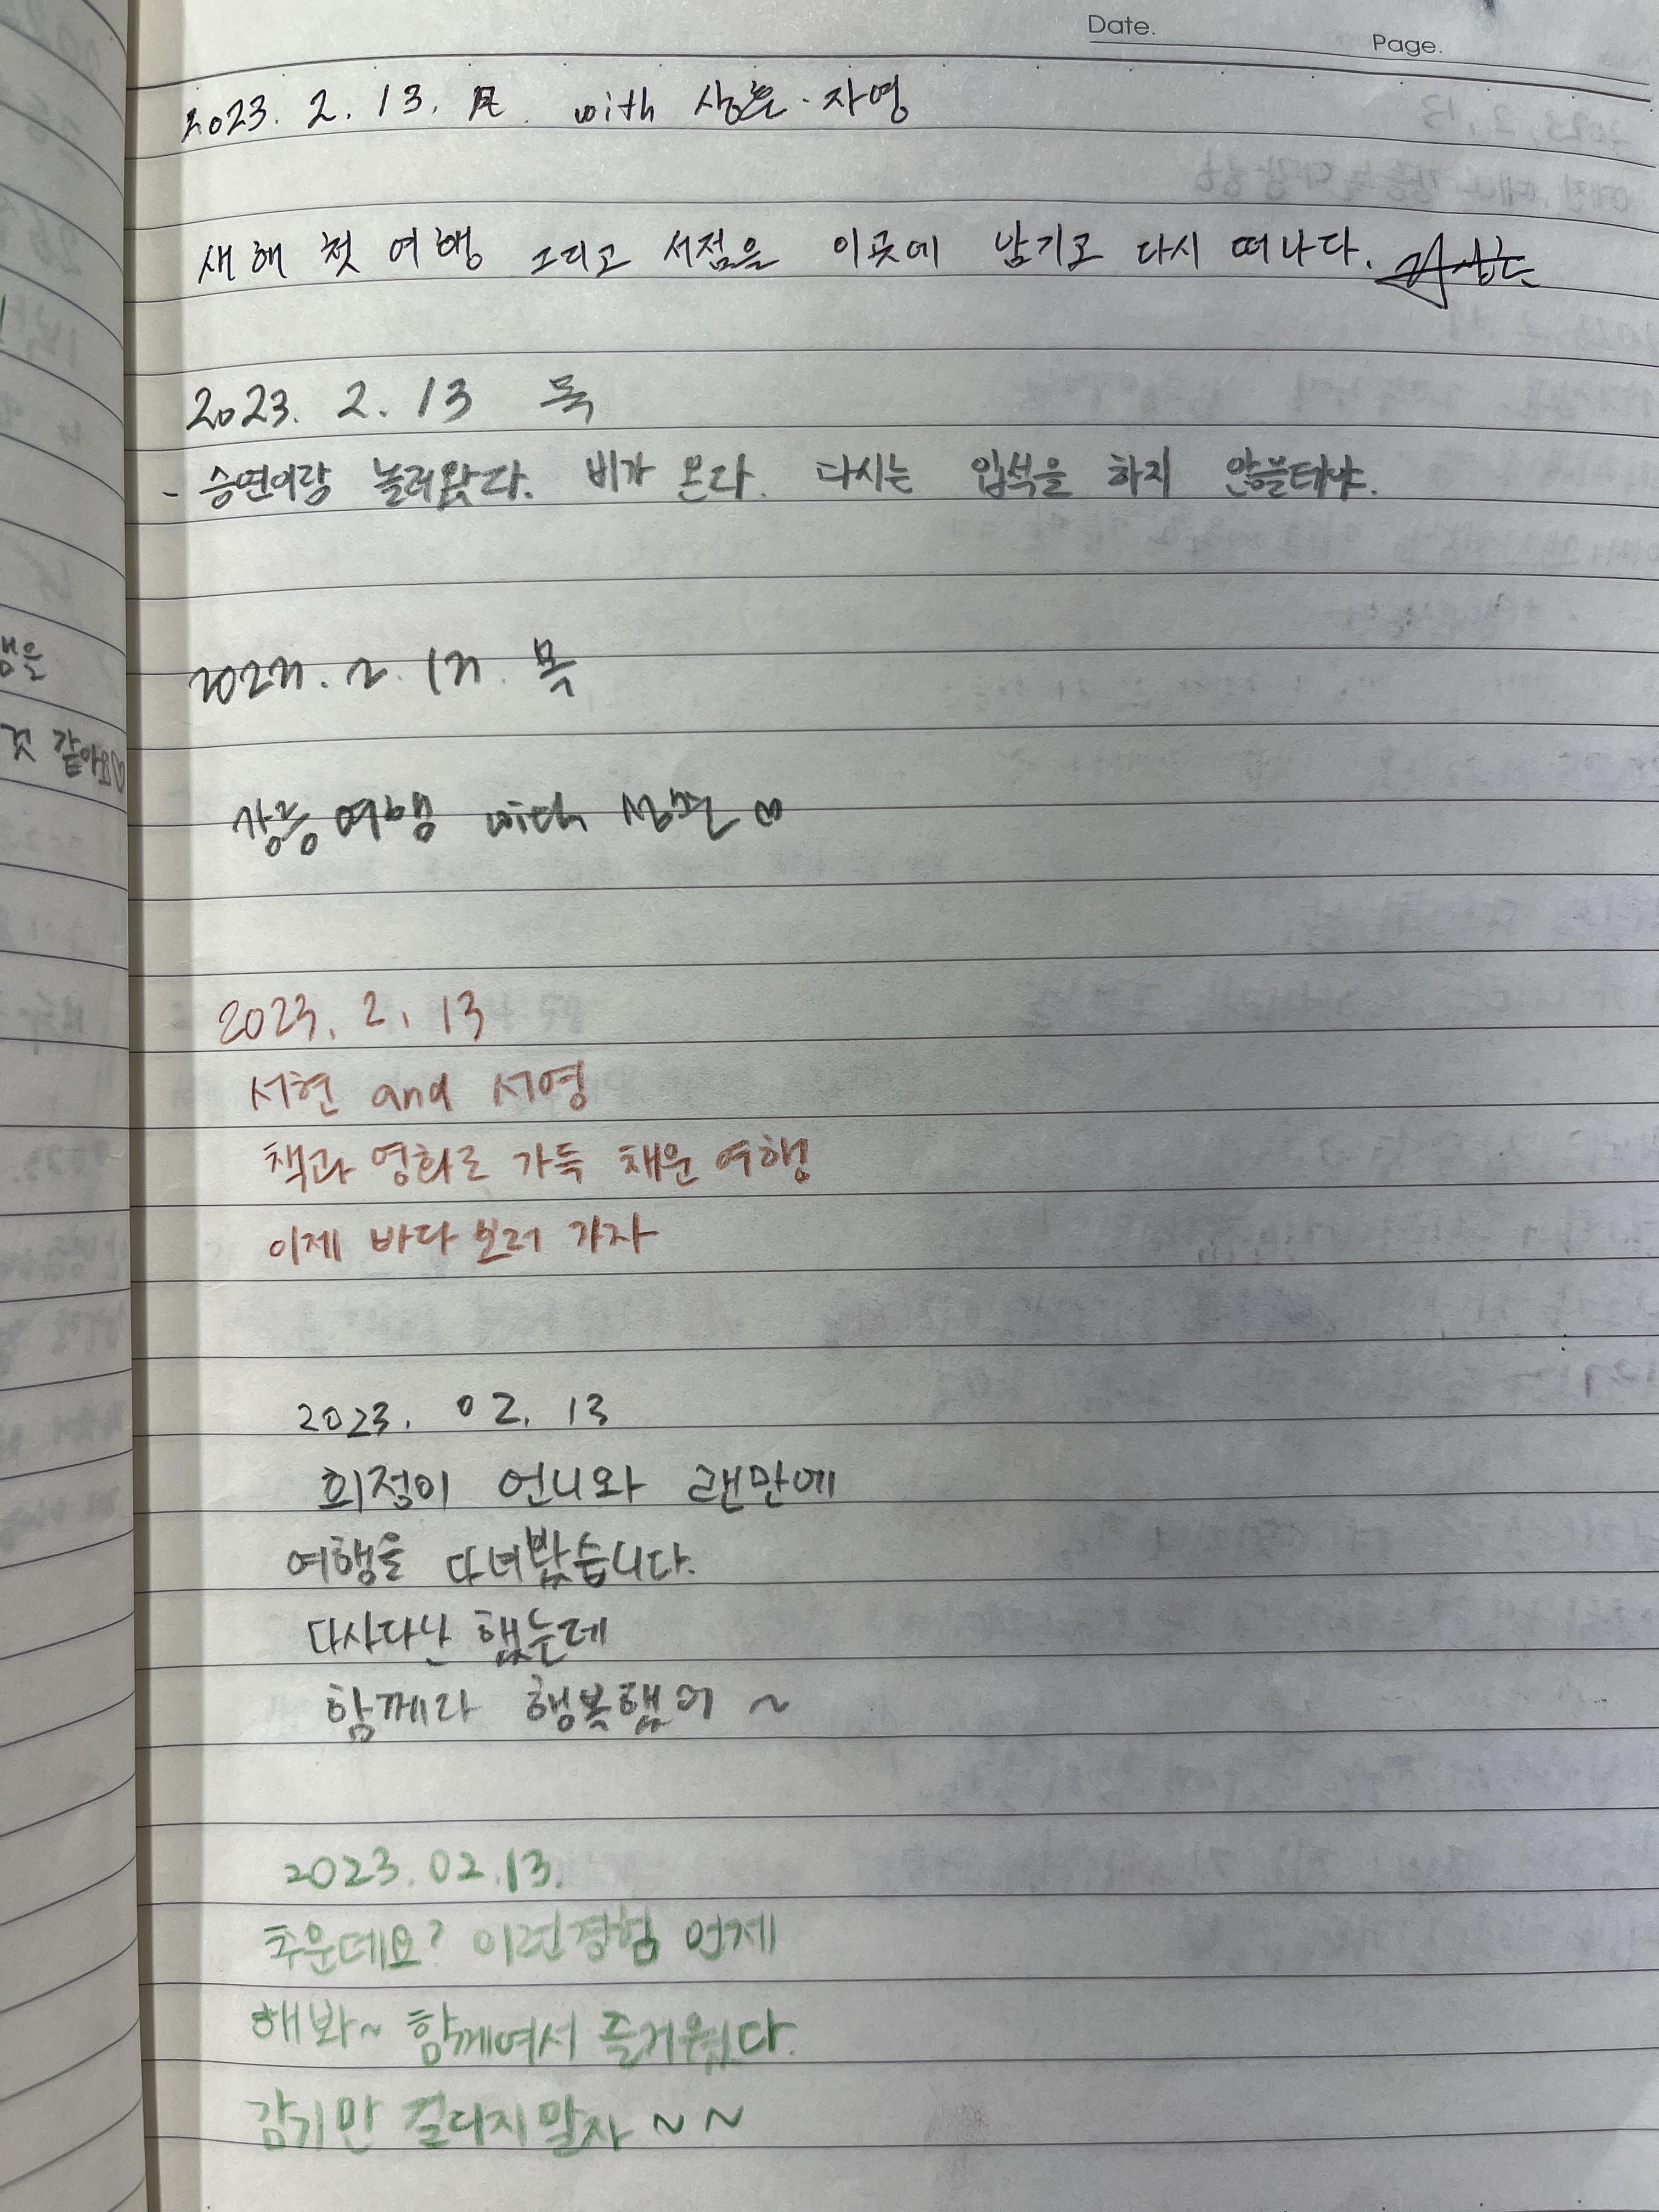 Date.
Page.
2023. 2. 13. 月. with 상훈·자영
새해 첫 여행 그리고 서점을 이곳에 남기고 다시 떠나다.
2023. 2. 13 목
- 승연이랑 놀러왔다. 비가 온다. 다시는 입석을 하지 않을테야.
2023. 2. 13. 목
강릉 여행 with
2023. 2. 13
서현 and 서영
책과 영화로 가득 채운 여행
이제 바다 보러 가자
2023. 02. 13
희정이 언니와 랜만에
여행을 다녀봤습니다.
다사다난 했는데
함께라 행복했어 ~
2023.02.13.
추운데요? 이런경험 언제
해봐~ 함께여서 즐거웠다.
감기만 걸리지말자 ~ ~
을
것 같아요♡